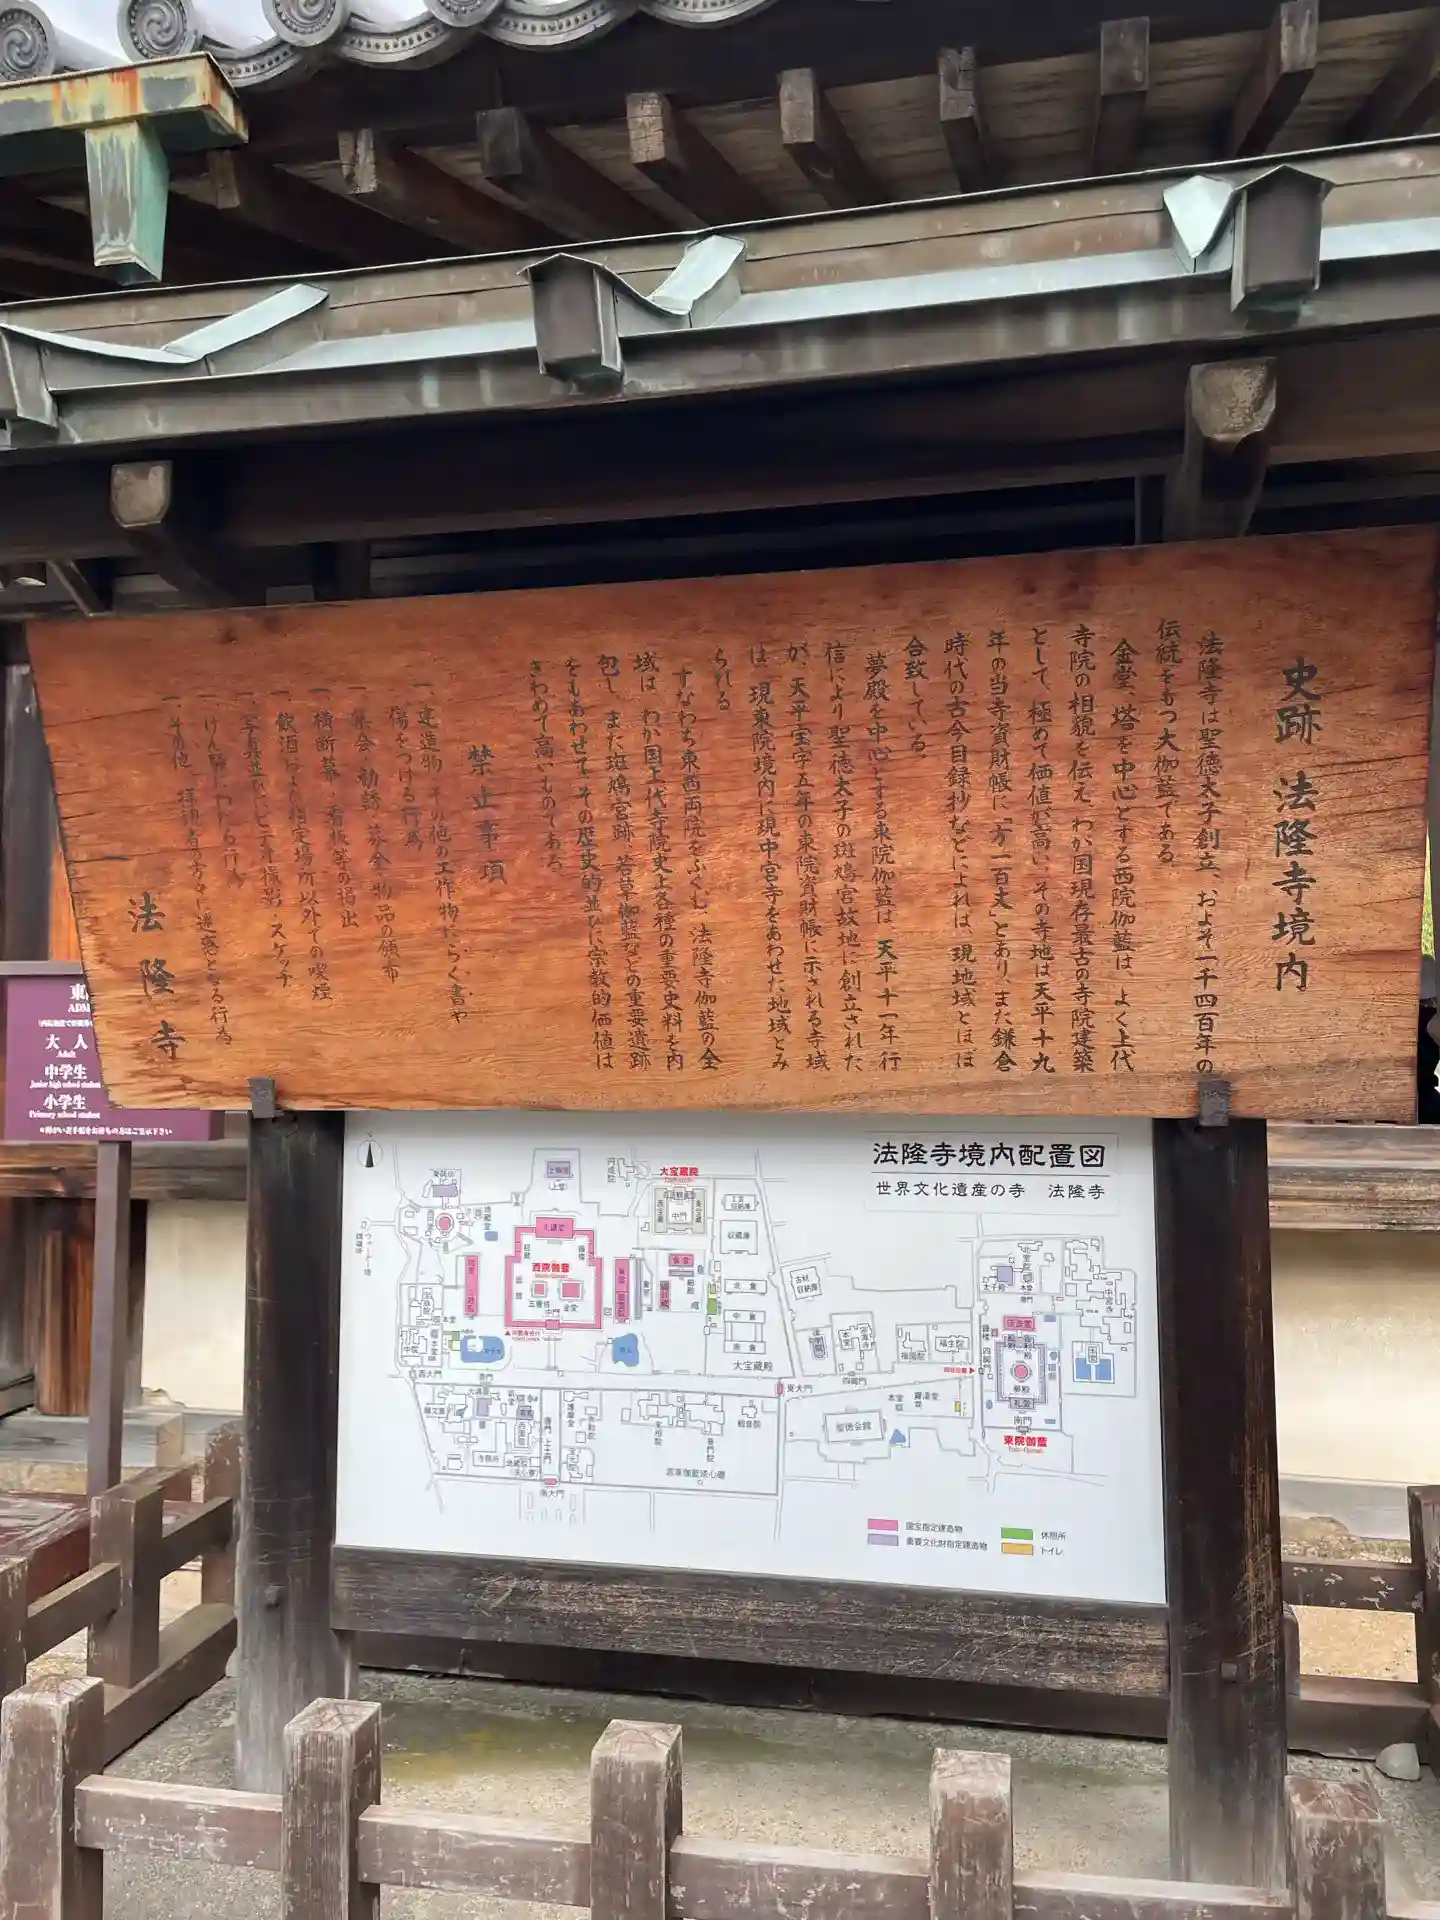 史跡 法隆寺境内
法隆寺は聖徳太子創立、およそ一千四百年の
伝統をもつ大伽藍である。
金堂、塔を中心とする西院伽藍は、よく上代
寺院の相貌を伝え、わが国現存最古の寺院建築
として、極めて価値が高い、その寺地は天平十九
年の当寺資財帳に「方一百丈」とあり、また鎌倉
時代の古今目録抄などによれば、現地域とほぼ
合致している。
夢殿を中心とする東院伽藍は、天平十一年行
信により聖徳太子の斑鳩宮故地に創立された
が、天平宝字五年の東院資財帳に示される寺域
は、現東院境内に現中宮寺をあわせた地域とみ
られる
すなわち東西両院をふくむ、法隆寺伽藍の全
域は、わが国上代寺院史上各種の重要史料を内
包し、また斑鳩宮跡、若草伽藍などの重要遺跡
をもあわせて、その歴史的並びに宗教的価値は
きわめて高いものである。
禁止事項
一、建造物、その他の工作物にらく書や
傷をつける行為
一、集会・勧誘・募金・物品の頒布
一、横断幕・看板等の掲出
一、飲酒および指定場所以外での喫煙
一、写真並びにビデオ撮影・スケッチ
一、その他、拝観者の方々に迷惑となる行為
法隆寺
大人
Adult
中学生
Junior high school student
小学生
Primary school student
法隆寺境内配置図
世界文化遺産の寺 法隆寺
大宝蔵院
中門
上御堂
大講堂
西院伽藍
五重塔
金堂
中門
収蔵庫
北倉
中倉
南倉
大宝蔵殿
食堂
西大門
東大門
南大門
四脚門
聖徳会館
福生院
観音院
若草伽藍塔心礎
古材
収納庫
中宮寺
夢殿
礼堂
南門
東院伽藍
国宝指定建造物
重要文化財指定建造物
休憩所
トイレ